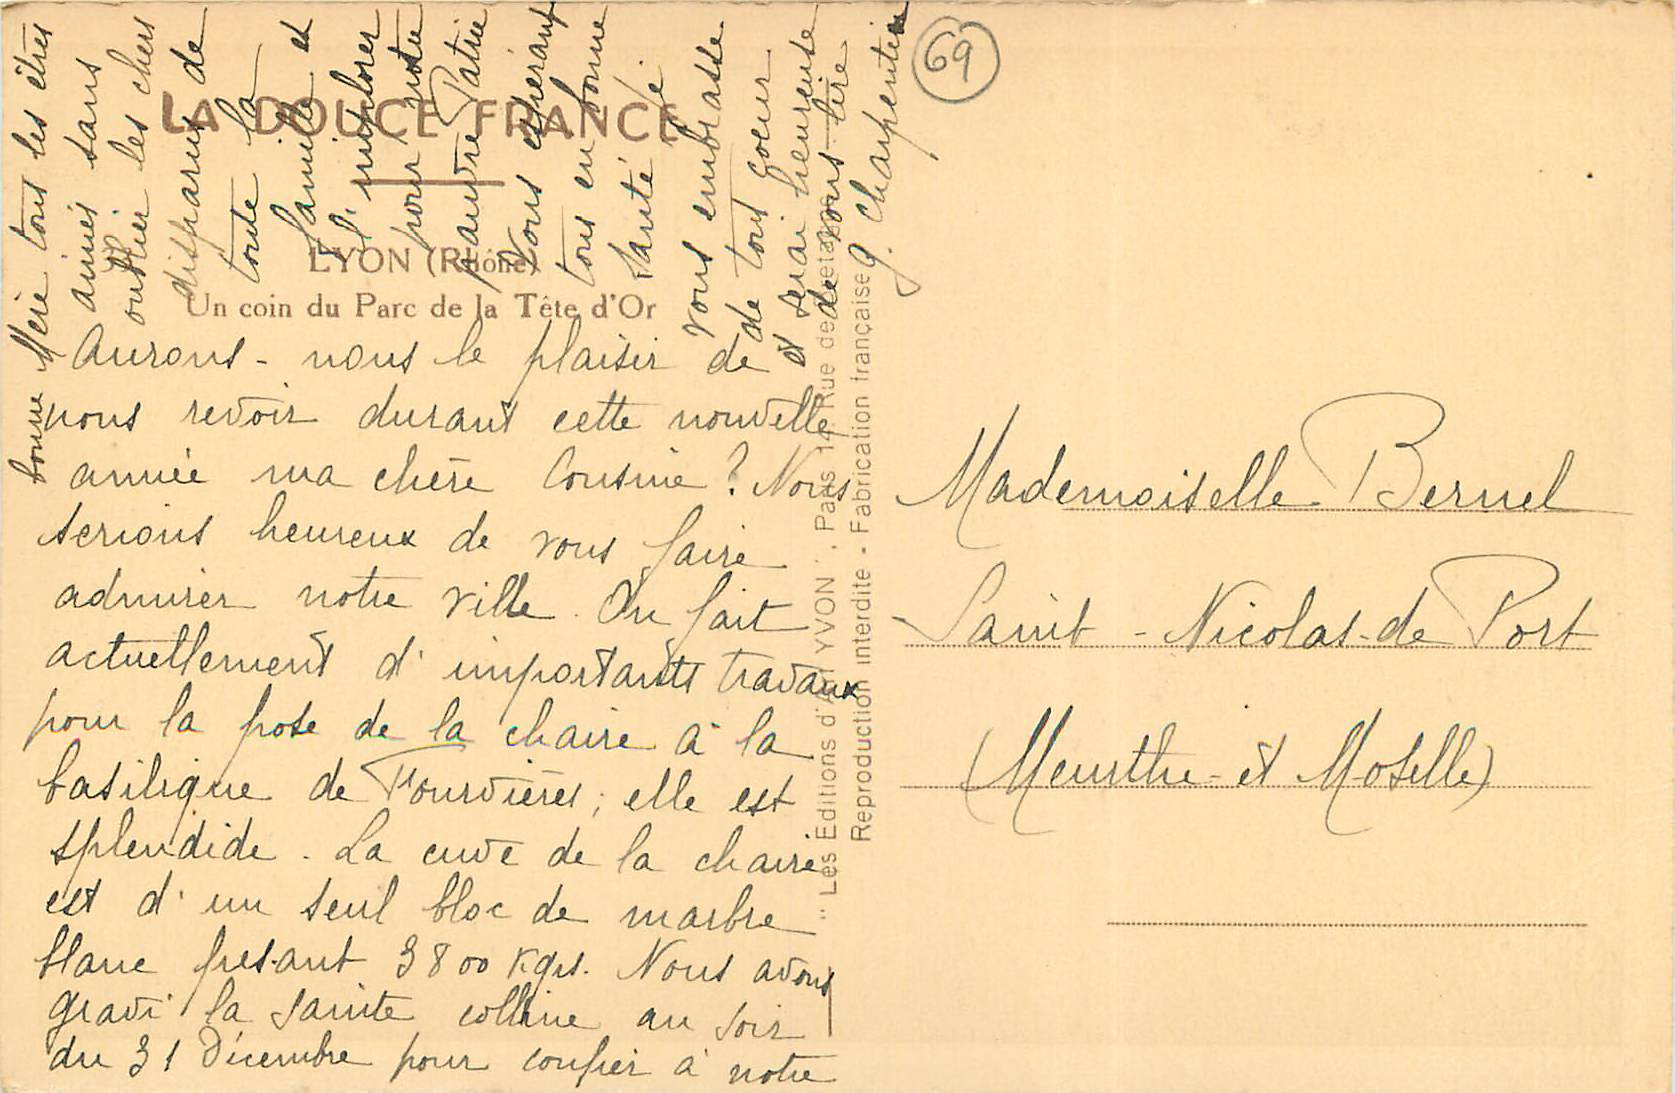 LA DOUCE FRANCE
LYON (Rhône)
Un coin du Parc de la Tête d'Or
69
Aurons-nous le plaisir de
nous revoir durant cette nouvelle
année ma chère Cousine ? Nous
serions heureux de vous faire
admirer notre ville. On fait
actuellement d'importants travaux
pour la pose de la chaire à la
basilique de Fourvières ; elle est
splendide. La cuve de la chaire
est d'un seul bloc de marbre
blanc pesant 3800 Kgrs. Nous avons
gravi la sainte colline au soir
du 31 Décembre pour confier à notre
bonne Mère tous les êtres
aimés sans
oublier les chers
disparus de
toute la
famille et
l'implorer
pour notre
pauvre Patrie
Vous espérant
tous en bonne
santé je
vous embrasse
de tout coeur
et serai heureuse
de vous lire
G. Charpentier
"Les Editions d'Art YVON". Paris 14, Rue de
Reproduction interdite - Fabrication française
Mademoiselle Bernel
Saint-Nicolas-de Port
(Meurthe-et Moselle)